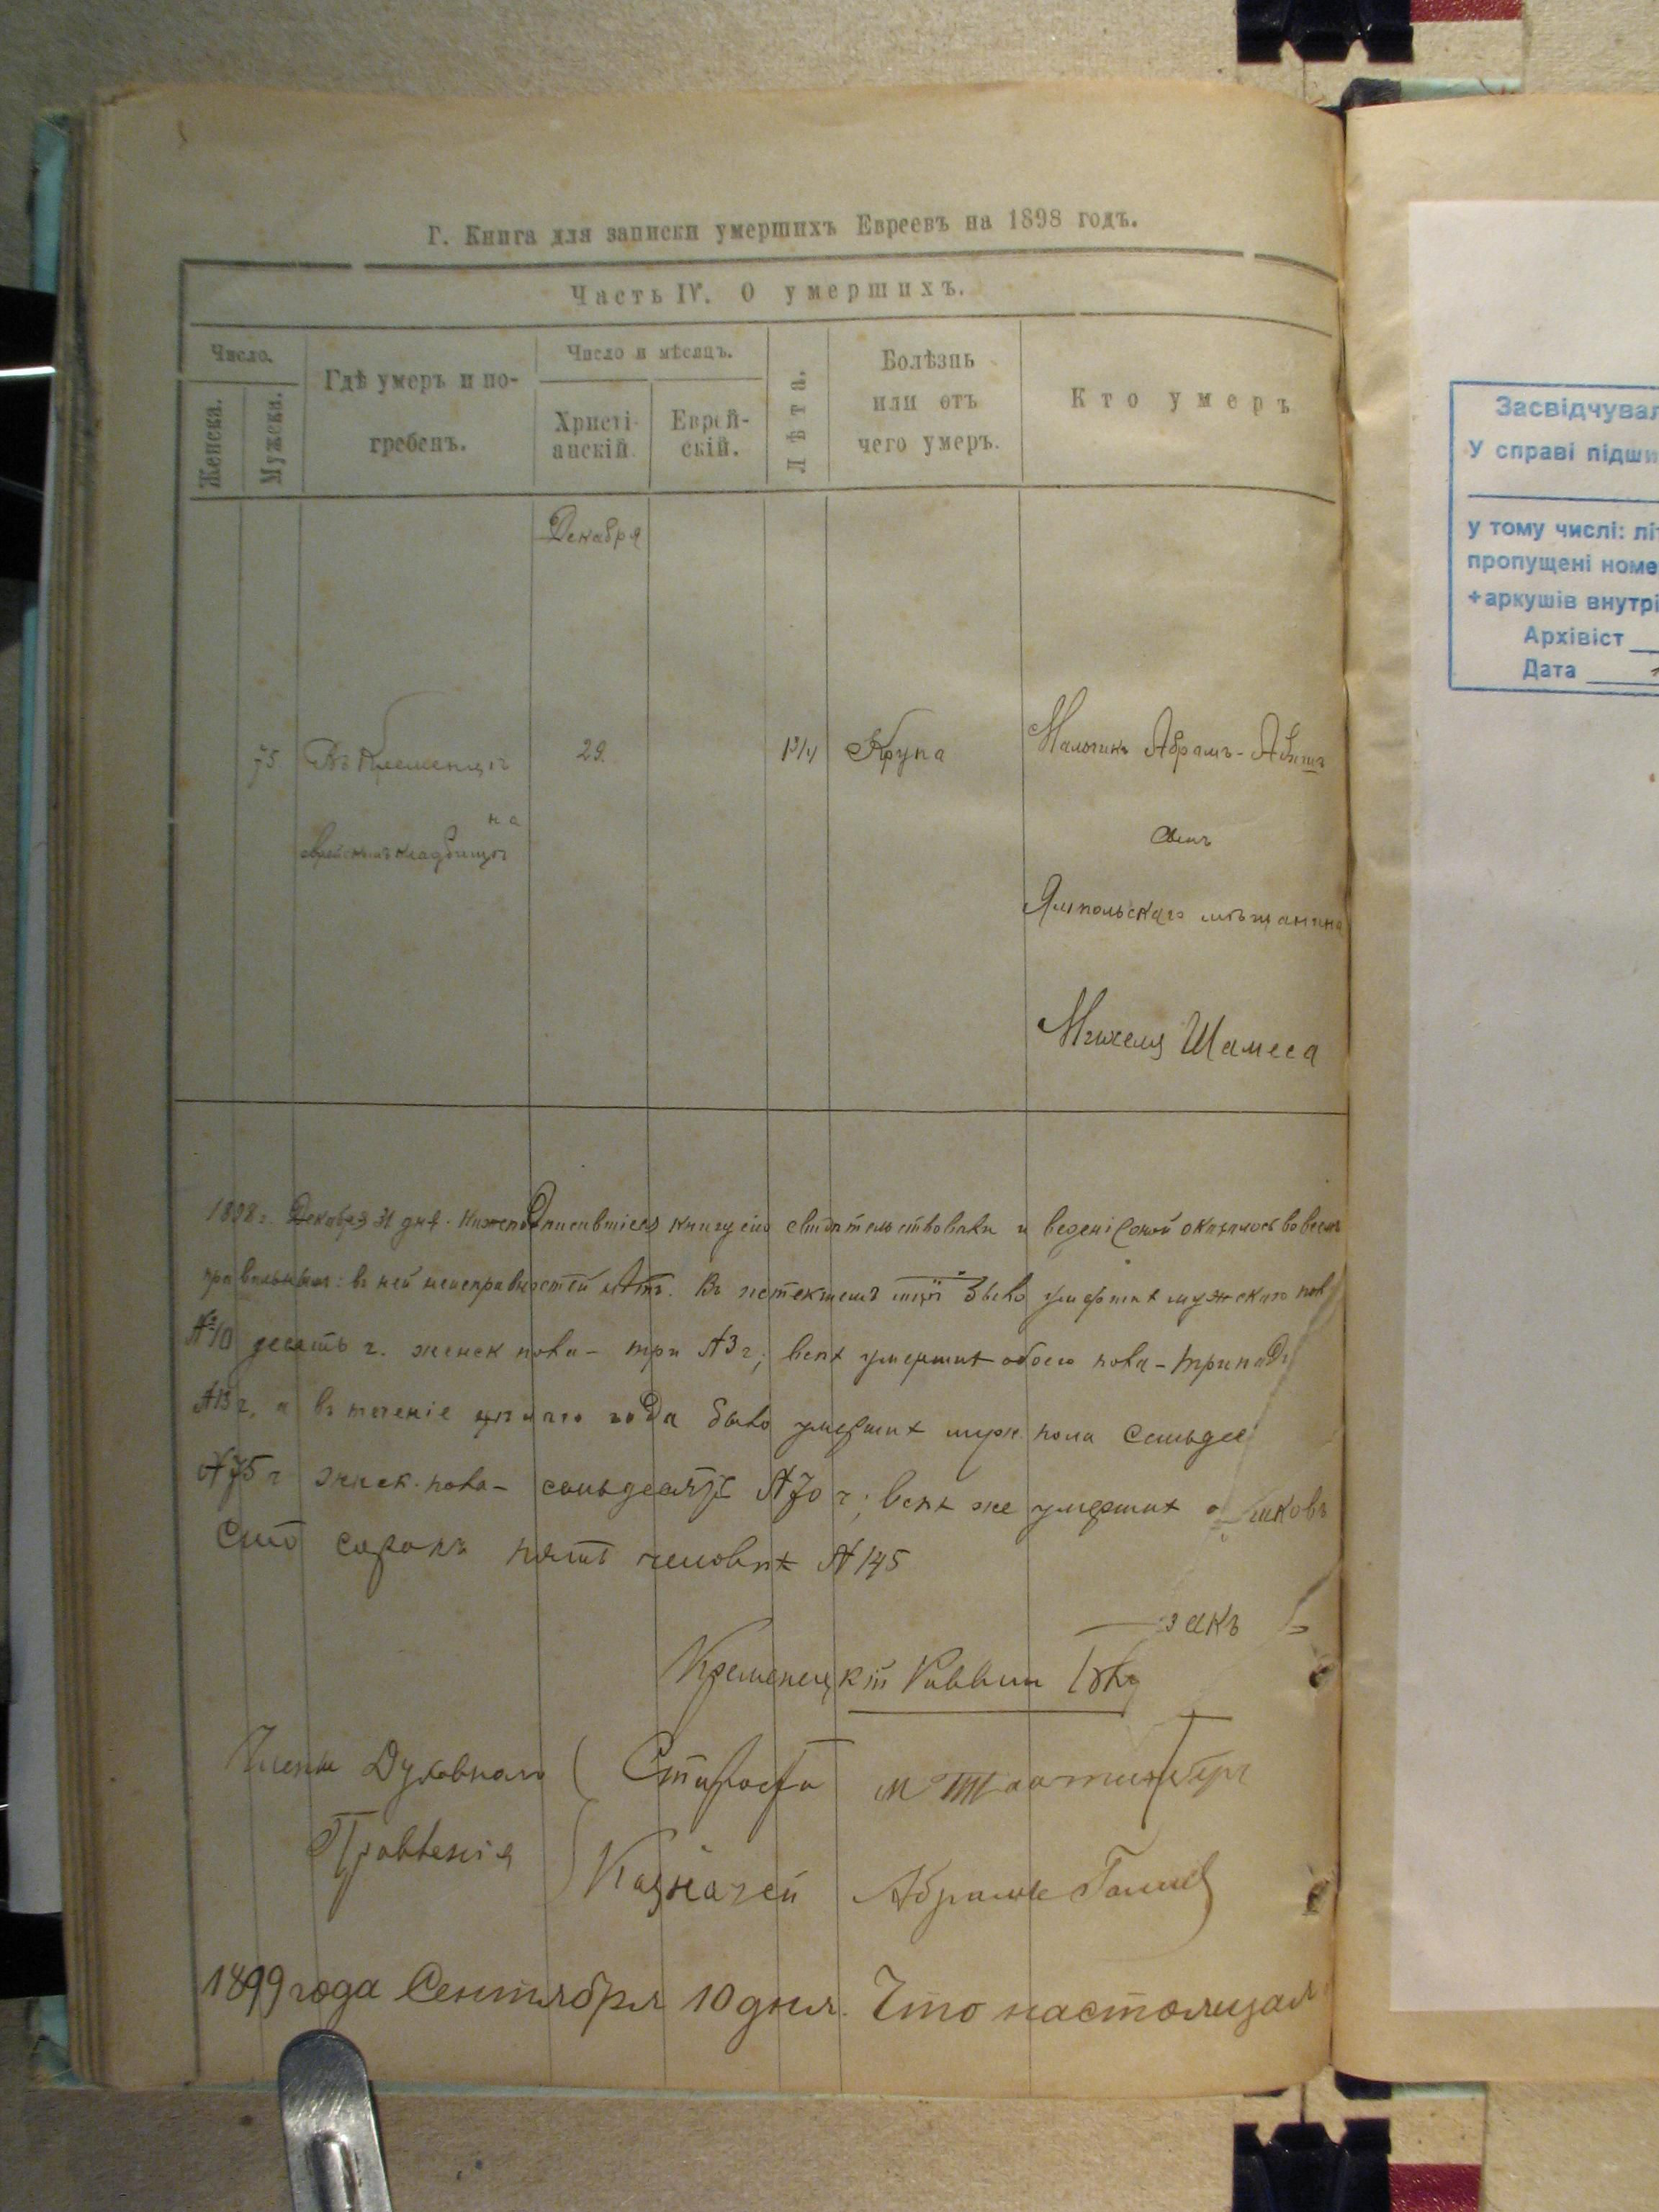 Г. Книга для записки умершихъ Евреевъ на 1898 годъ.
Часть IV. О умершихъ.
Число.
Женска.
Мужеска.
Гдѣ умеръ и по-
гребенъ.
Число и мѣсяцъ.
Христі-
анскій.
Еврей-
скій.
Лѣта.
Болѣзнь
или отъ
чего умеръ.
Кто умеръ
Декабря
75. Въ Кременцѣ 29. 1 3/4 Крупа Мальчикъ Абрамъ-
на
еврейскомъ кладбищѣ
сынъ
Ямпольскаго мѣщанина
Михеля Шамеса
1898 г. Декабря 31 дня. Нижеподписавшіеся книгу сію свидѣтельствовали и веденіе оной оказалось во всемъ
правильнымъ: въ ней неисправностей нѣтъ. Въ истекшемъ было умершихъ мужскаго пол
№ 10 десять ч. женск пола - три № 3 ч; всѣхъ умершихъ обоего пола - тринад
№ 13 ч, а въ теченіе цѣлаго года было умершихъ муж. пола семьдес
№ 75 ч женск. пола - семьдесятъ № 70 ч; всѣхъ же умершихъ
сто сорокъ пять человѣкъ № 145
Кременецкій Раввин
Члены Духовнаго ( Староста
Правленія Казначей Абрамъ
1899 года Сентября 10 дня. Что настоящая
Засвідчувал
У справі підши
у тому числі: лі
пропущені номе
+аркушів внутрі
Архівіст
Дата